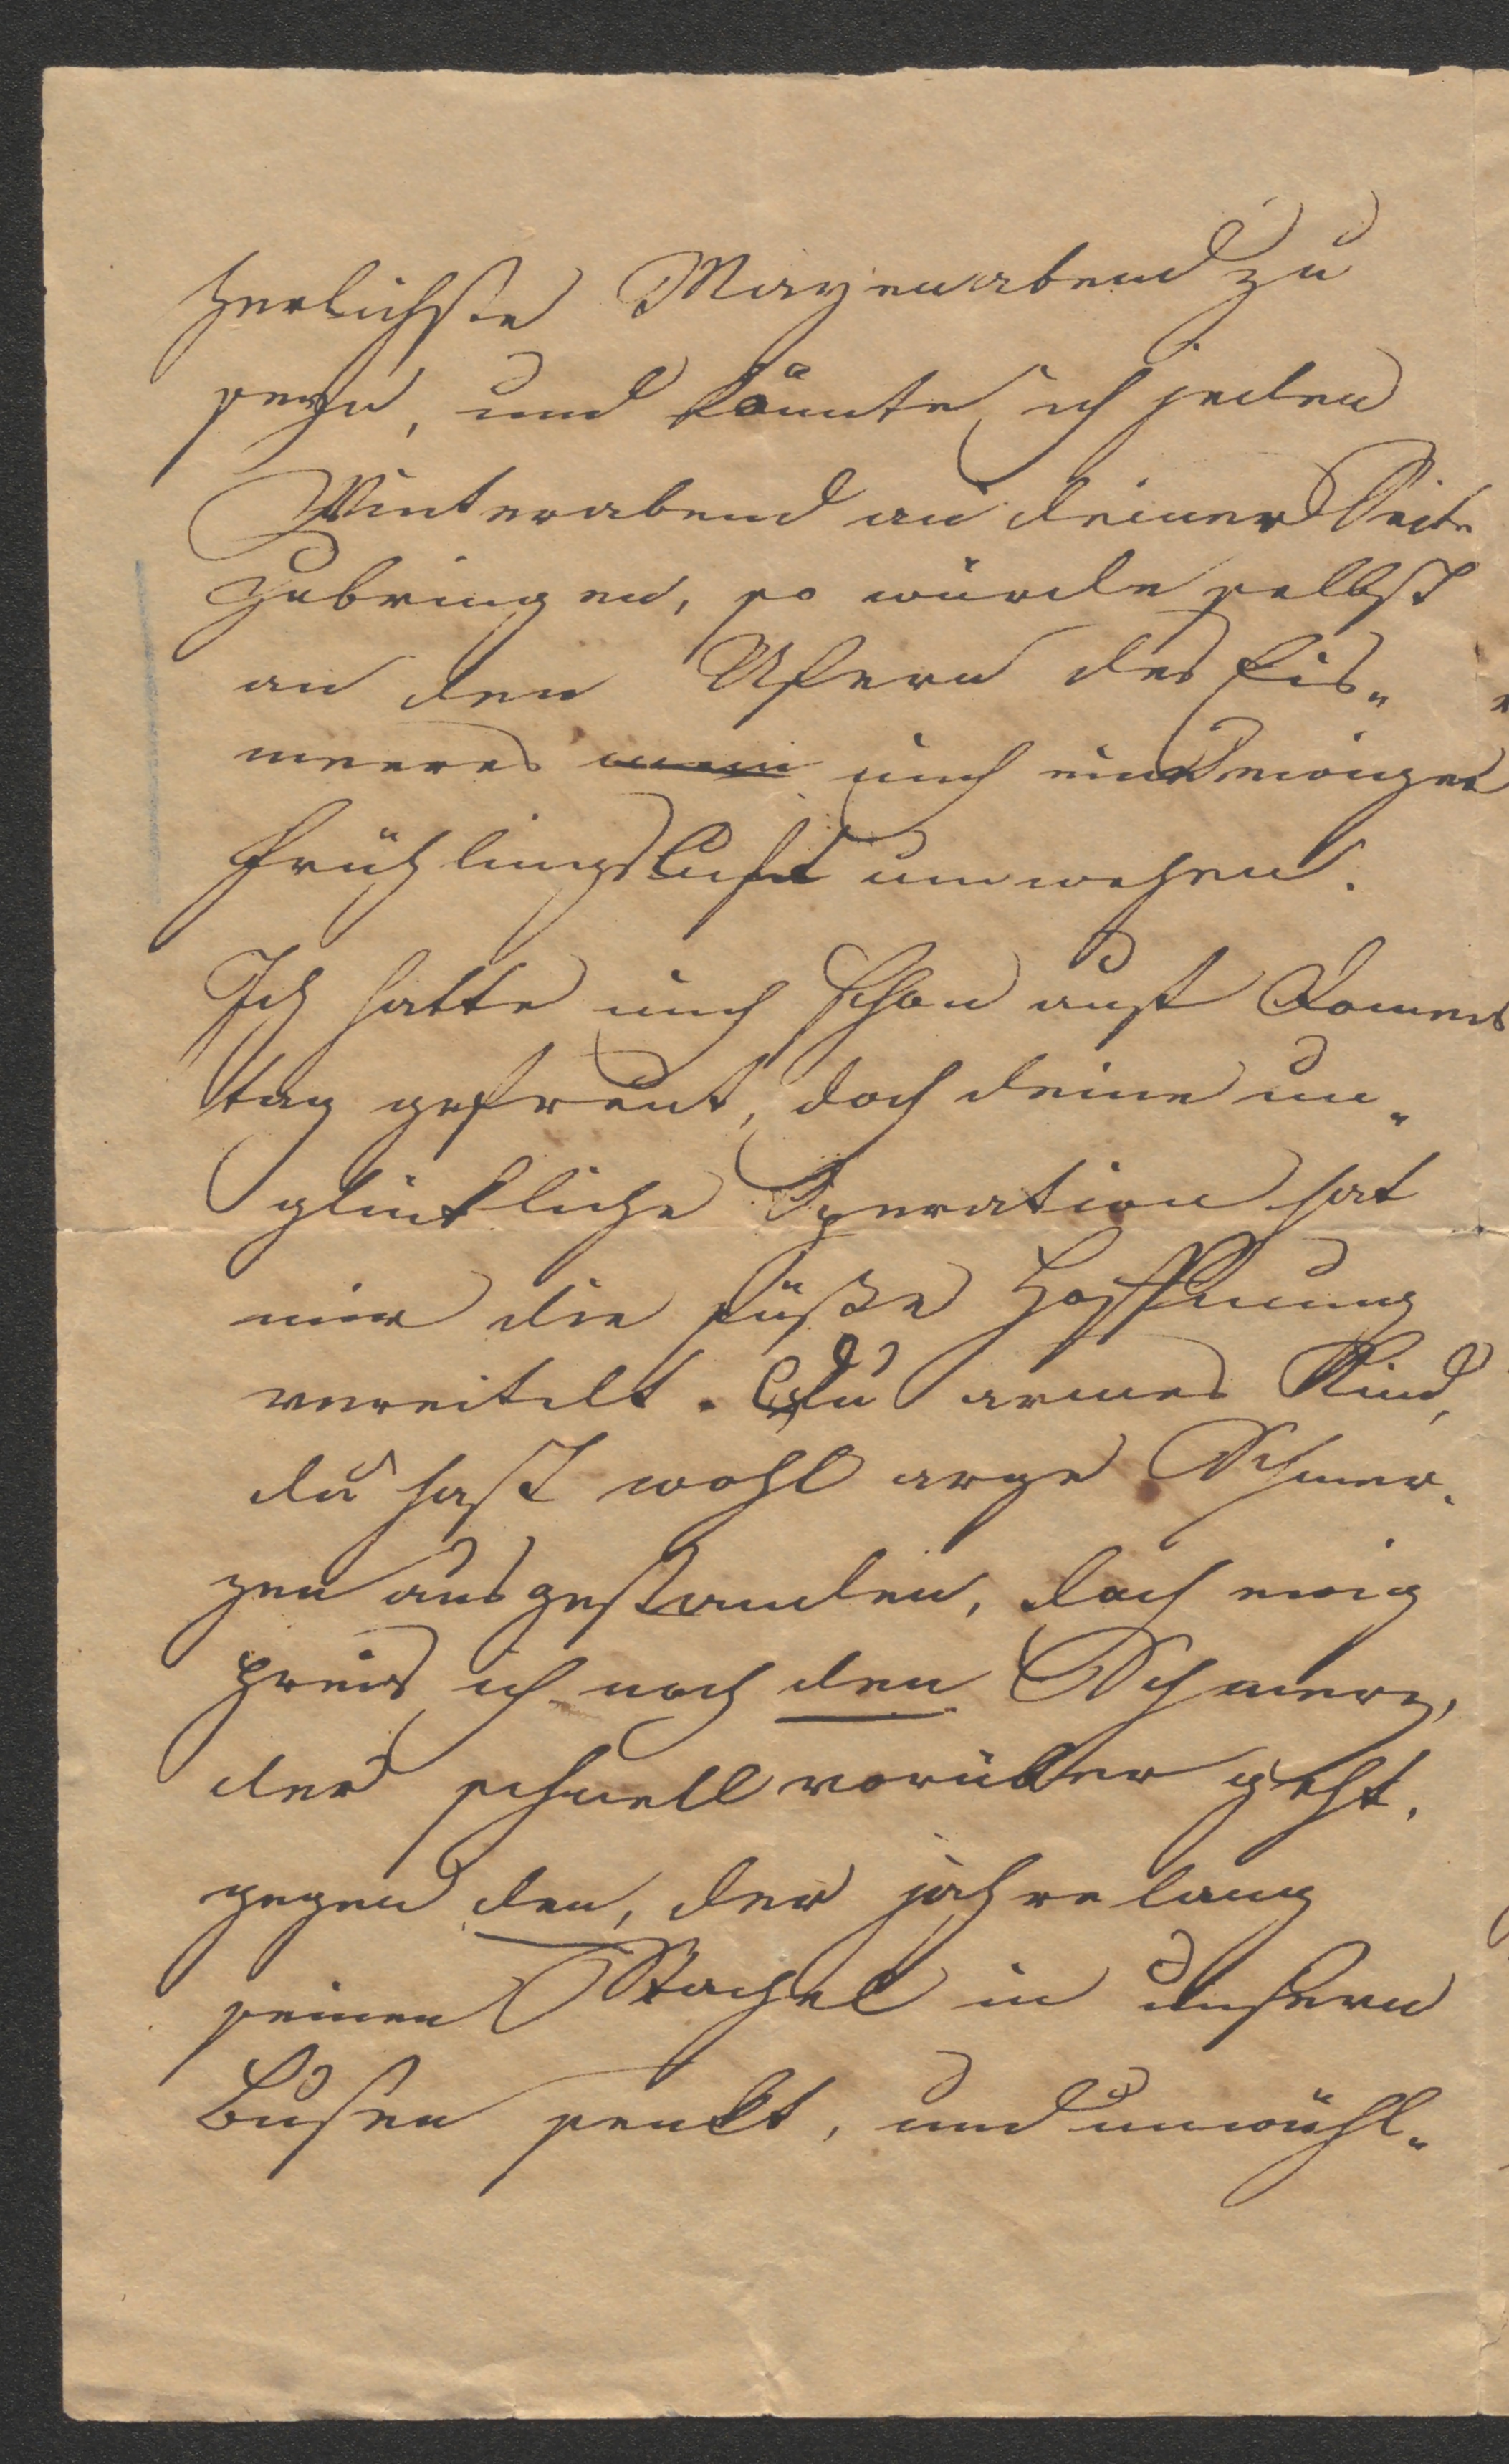 herlichste Mayenabend zu
seyn, und könnte ich jeden
Winterabend an deiner Seite
zubringen, so würde selbst
an den Ufern des Eis-
meeres mich eine ewige
Frühlingsluft umwehen.
Ich hatte mich schon auf Donners
tag gefreut, doch deine un-
glückliche Operation hat
mir die süße Hoffnung
vereitelt. Du armes Kind,
du hast wohl arge Schmer-
zen ausgestanden, doch ewig
preis ich noch den Schmerz,
der schnell vorüber geht,
gegen den, der jahrelang
seinen Stachel in unsern
Busen senkt, und unwühl-